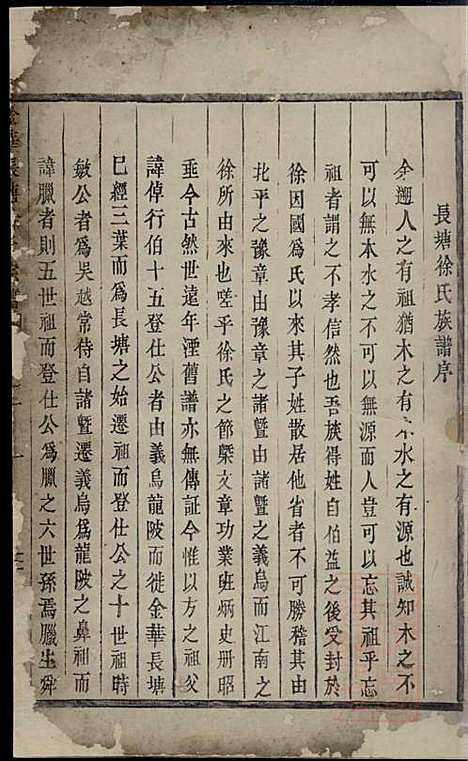 長塘徐氏族譜序
余邇人之有祖猶木之有本水之有源也誠知木之不
可以無本水之不可以無源而人豈可以忘其祖乎忘
祖者謂之不孝信然也吾族得姓自伯益之後受封於
徐因國為氏以來其子姓散居他省者不可勝稽其由
北平之豫章由豫章之諸暨由諸暨之義烏而江南之
徐所由來也嗟乎徐氏之節槩文章功業班炳史册昭
垂今古然世遠年湮舊譜亦無傳証今惟以方之祖父
諱倬行伯十五登仕公者由義烏龍陂而徙金華長塘
巳經三葉而為長塘之始遷祖而登仕公之十世祖時
敏公者為吳越常侍自諸暨遷義烏為龍陂之鼻祖而
諱臘者則五世祖而登仕公為臘之六世孫焉臘生舜